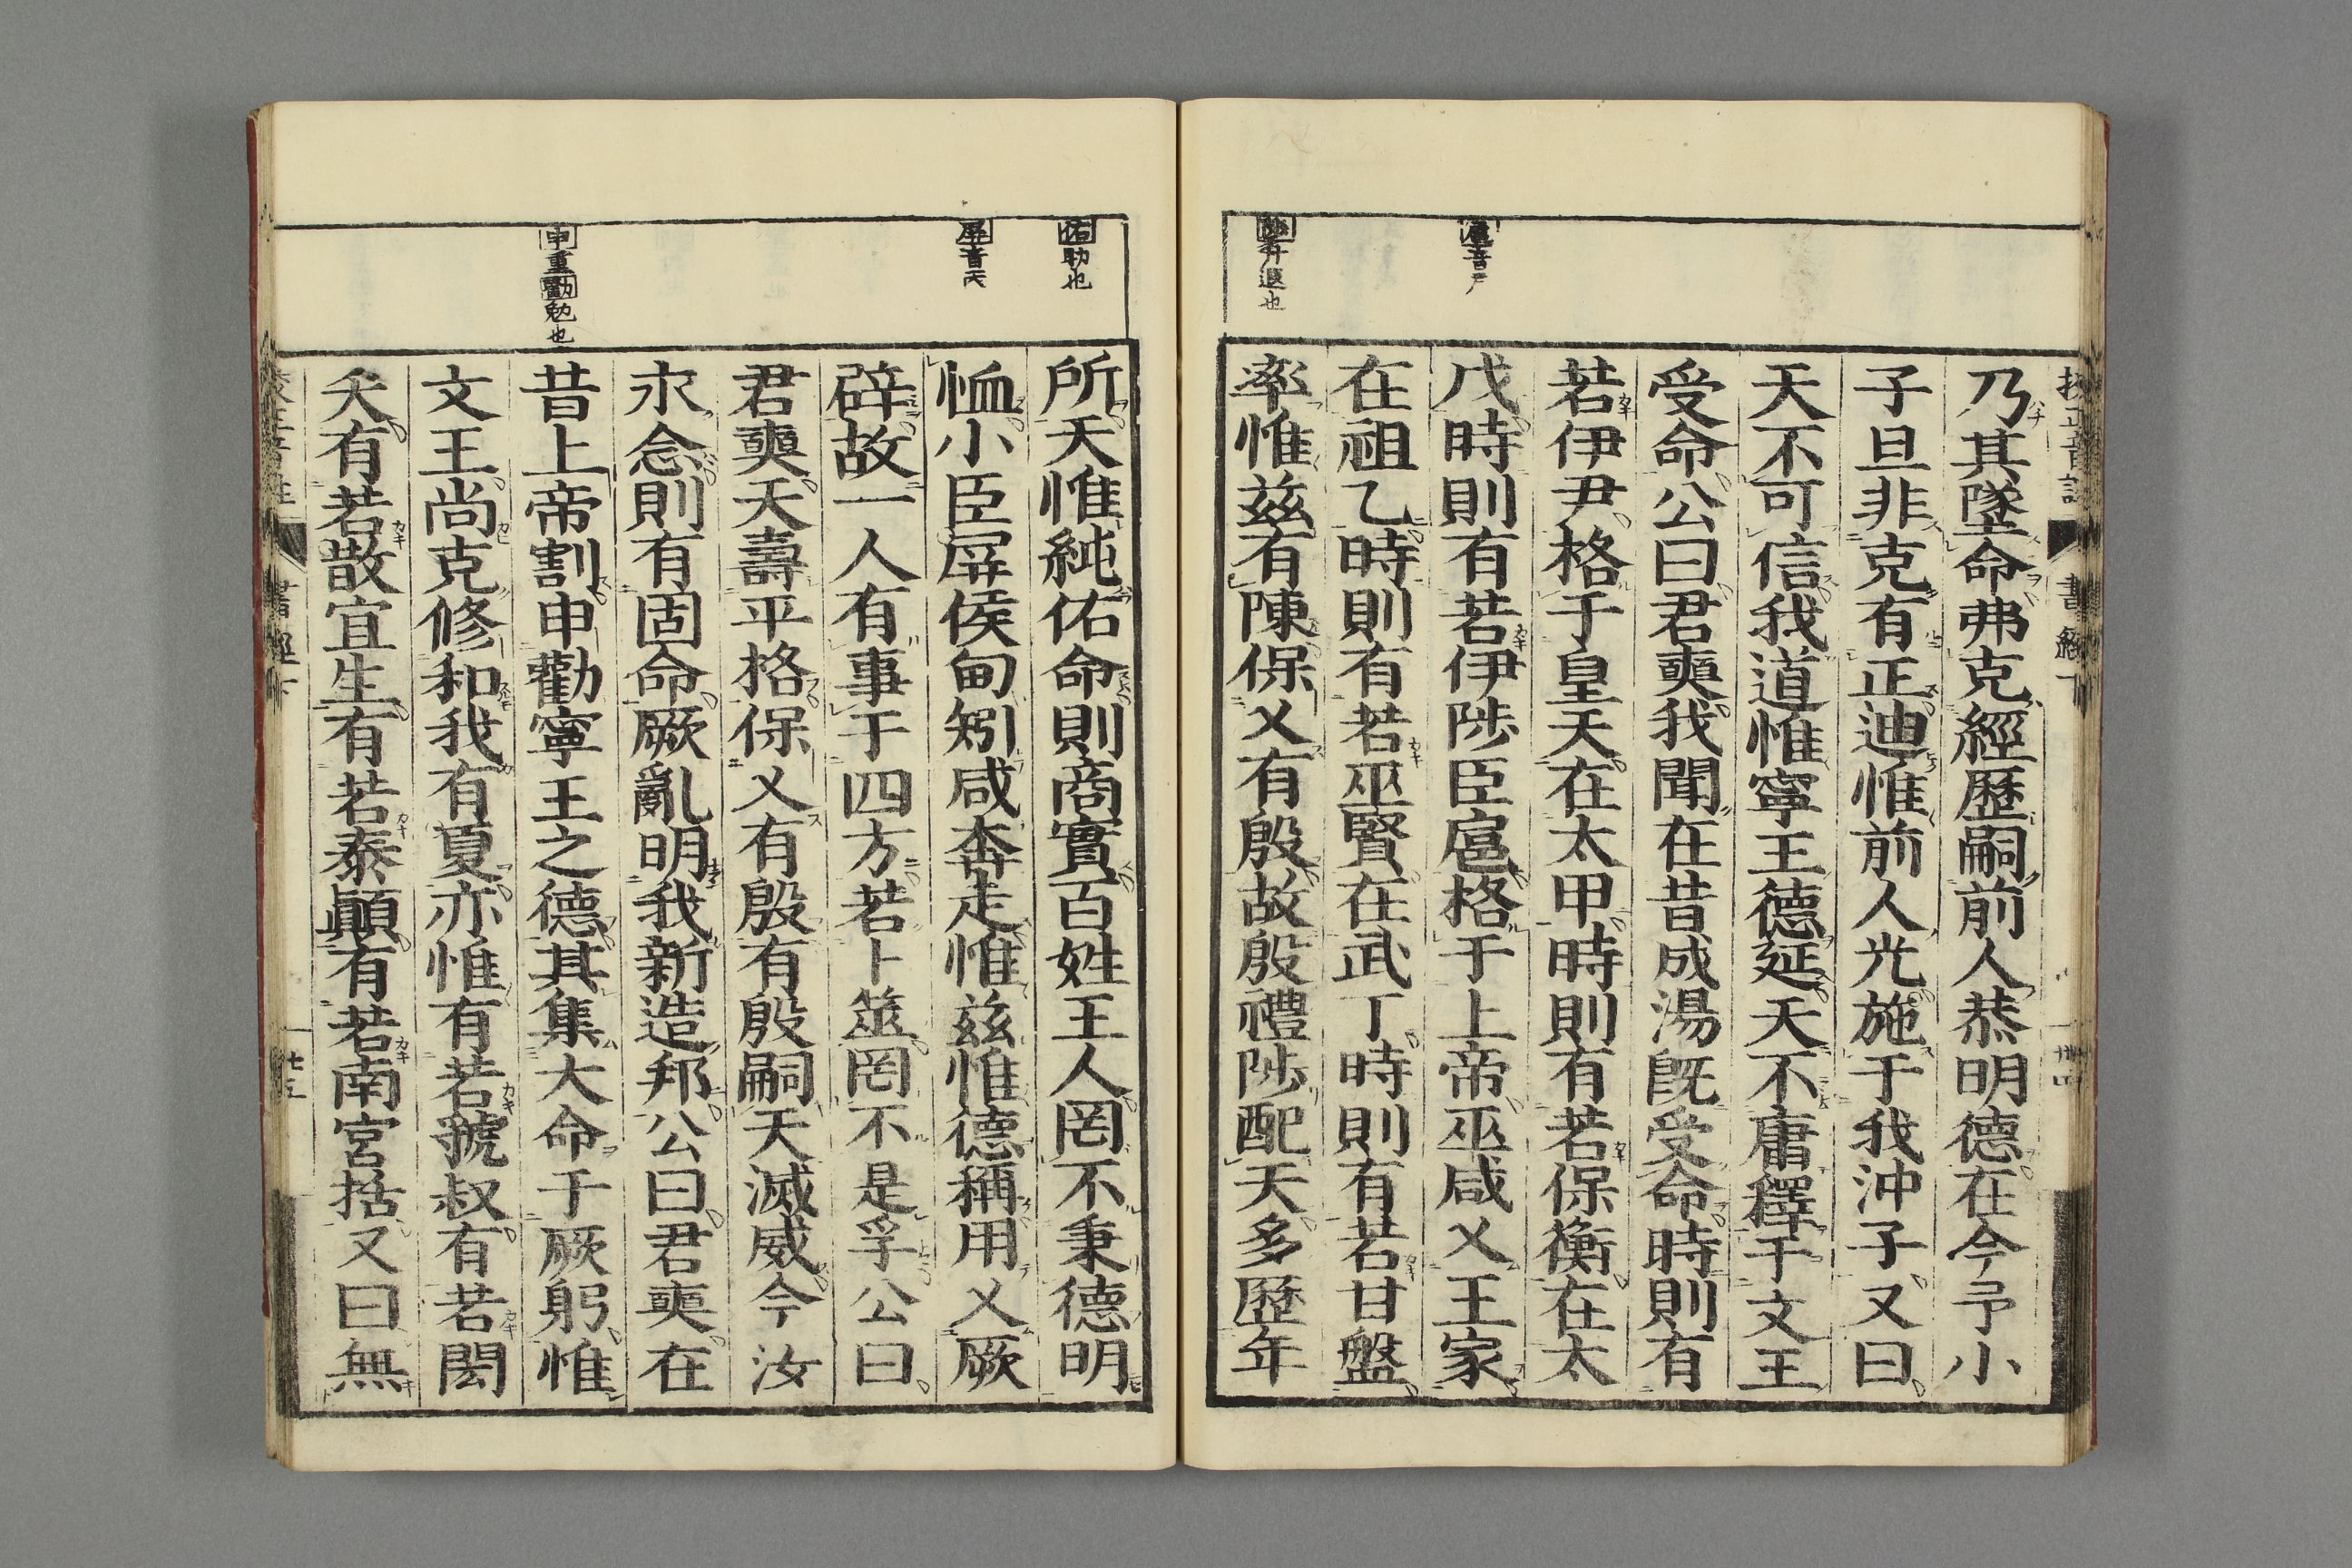 乃其墜命弗克經歷嗣前人恭明德在今予小
子旦非克有正迪惟前人光施于我沖子又曰
天不可信我道惟寧王德延天不庸釋于文王
受命公曰君奭我聞在昔成湯旣受命時則有
若伊尹格于皇天在太甲時則有若保衡在太
戊時則有若伊陟臣扈格于上帝巫咸乂王家
在祖乙時則有若巫賢在武丁時則有若甘盤
率惟茲有陳保乂有殷故殷禮陟配天多歷年
扈音戸
陟升遐也
書經下
所天惟純佑命則商實百姓王人罔不秉德明
恤小臣屏侯甸矧咸奔走惟茲惟德稱用乂厥
辟故一人有事于四方若卜筮罔不是孚公曰
君奭天壽平格保乂有殷有殷嗣天滅威今汝
永念則有固命厥亂明我新造邦公曰君奭在
昔上帝割申勸寧王之德其集大命于厥躬惟
文王尚克修和我有夏亦惟有若虢叔有若閎
夭有若散宜生有若泰顚有若南宮括又曰無
佑助也
屏音丙
申重勸勉也
書經下